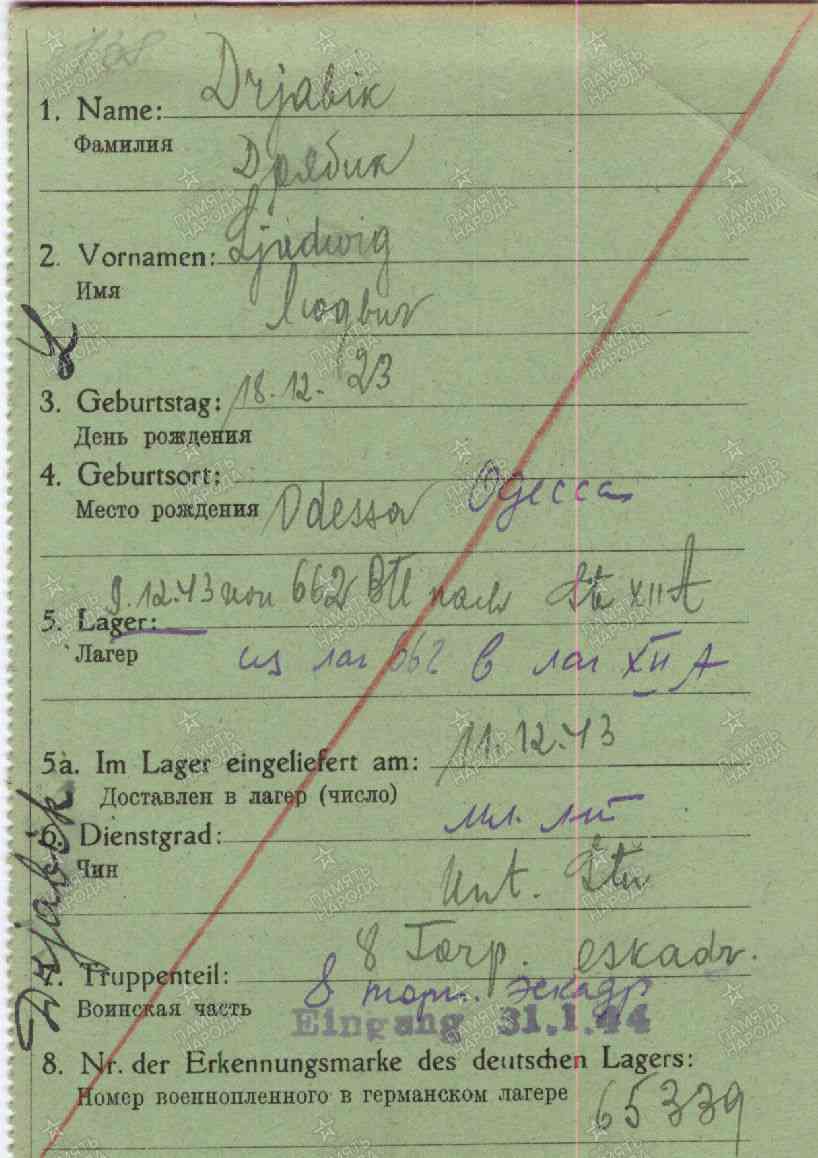 1. Name: Drjabik
Фамилия
Дрябик
2. Vornamen: Ljudwig
Имя
Людвиг
3. Geburtstag: 18.12. 23
День рождения
4. Geburtsort:
Место рождения Odessa Одесса
9.12.43 von 662 Btl nach XII A
5. Lager:
Лагер из лаг 662 в лаг XII A
5a. Im Lager eingeliefert am: 11.12.43
Доставлен в лагер (число)
мл. лт
6. Dienstgrad:
Чин Unt. Ltn
8 Torp. eskadr.
7. Truppenteil:
Воинская часть 8 торп. эскадр
Eingang 31.1.44
8. Nr. der Erkennungsmarke des deutschen Lagers:
Номер военнопленного в германском лагере 65339
Drjabik
ПАМЯТЬ НАРОДА